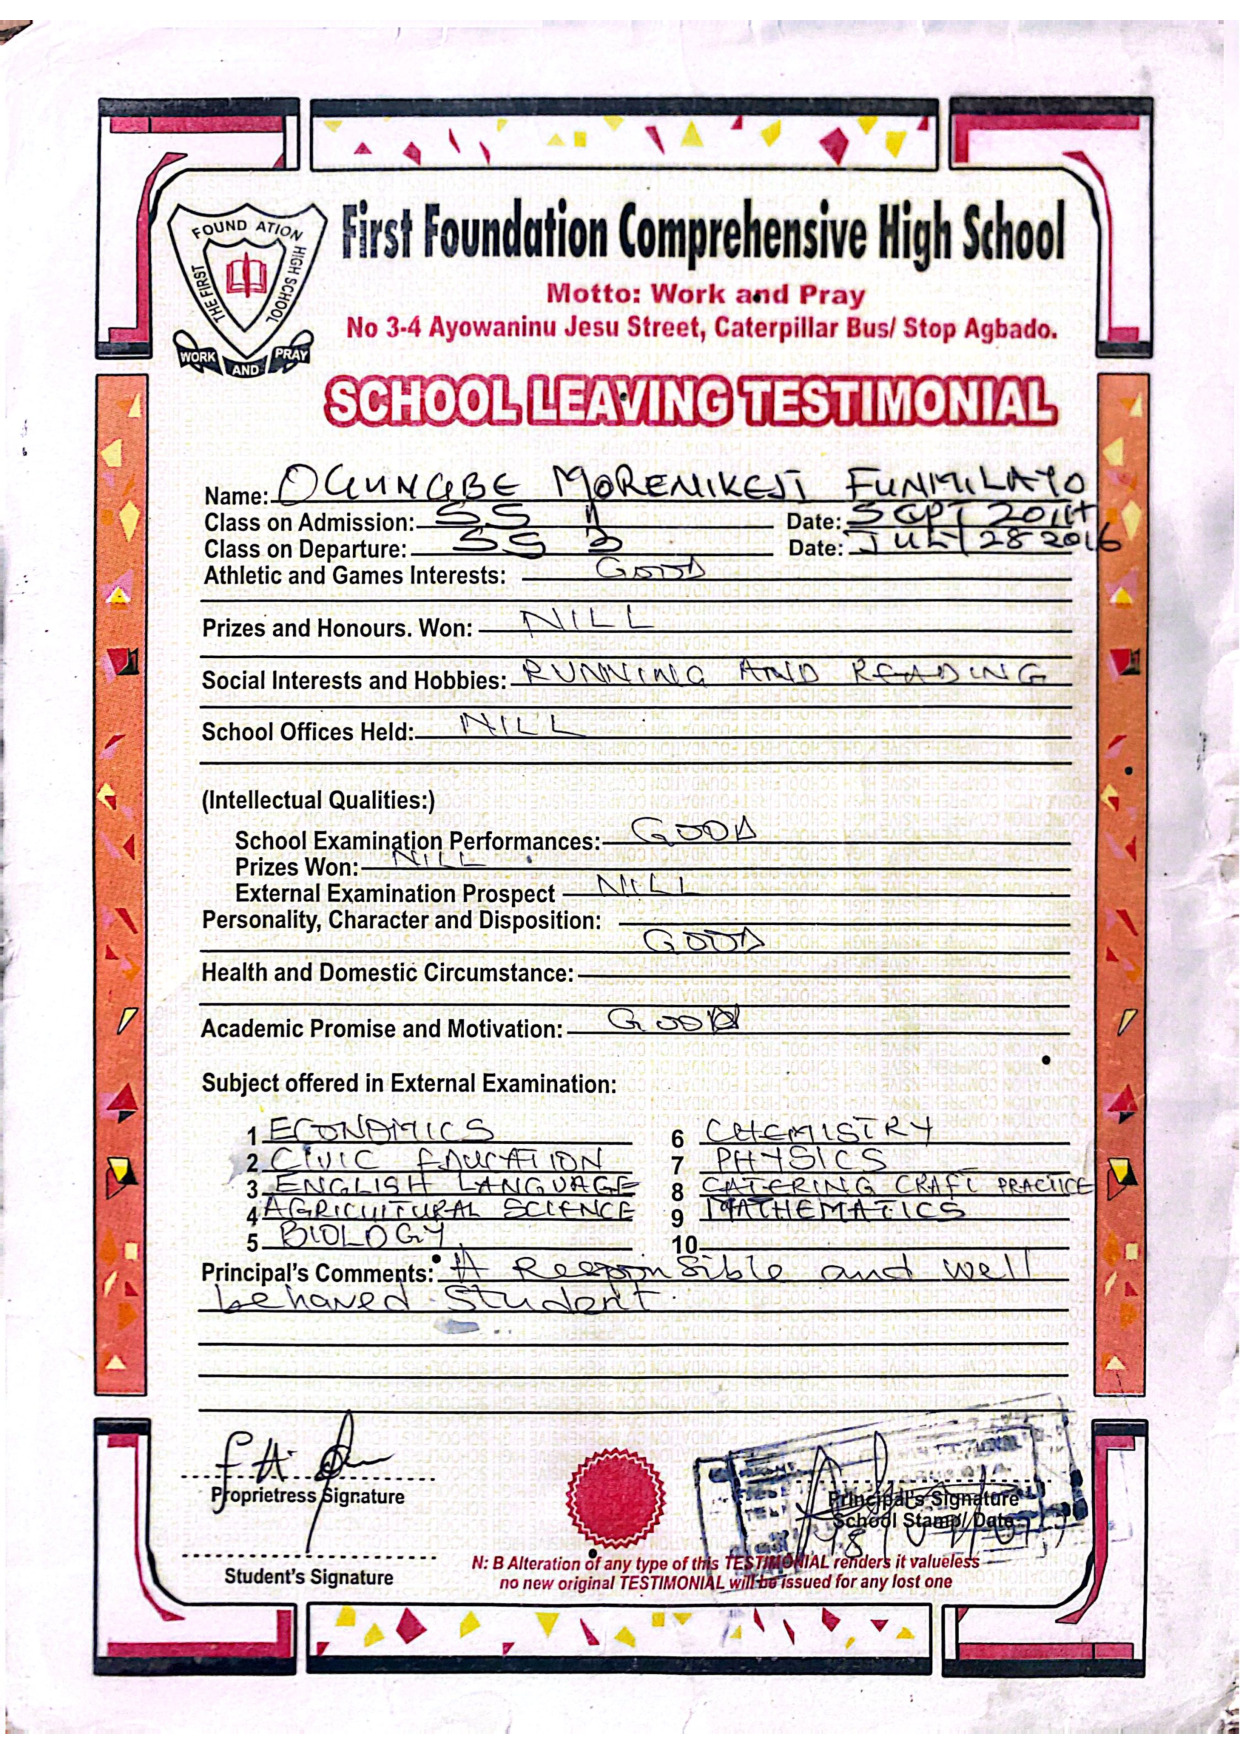 THE FIRST FOUNDATION HIGH SCHOOL
WORK AND PRAY
First Foundation Comprehensive High School
Motto: Work and Pray
No 3-4 Ayowaninu Jesu Street, Caterpillar Bus/ Stop Agbado.
SCHOOL LEAVING TESTIMONIAL
Name: OGUNGBE MORENIKEJI FUNMILAYO
Class on Admission: SS 1 Date: SEPT 2014
Class on Departure: SS 3 Date: JULY 28 2016
Athletic and Games Interests: GOOD
Prizes and Honours. Won: NILL
Social Interests and Hobbies: RUNNING AND READING
School Offices Held: NILL
(Intellectual Qualities:)
School Examination Performances: GOOD
Prizes Won: NILL
External Examination Prospect NILL
Personality, Character and Disposition:
GOOD
Health and Domestic Circumstance:
Academic Promise and Motivation: GOOD
Subject offered in External Examination:
1 ECONOMICS 6 CHEMISTRY
2 CIVIC EDUCATION 7 PHYSICS
3 ENGLISH LANGUAGE 8 CATERING CRAFT PRACTICE
4 AGRICULTURAL SCIENCE 9 MATHEMATICS
5 BIOLOGY 10
Principal's Comments: A Responsible and well
behaved Student.
Proprietress Signature
Principal's Signature
School Stamp/ Date
Student's Signature
N: B Alteration of any type of this TESTIMONIAL renders it valueless
no new original TESTIMONIAL will be issued for any lost one